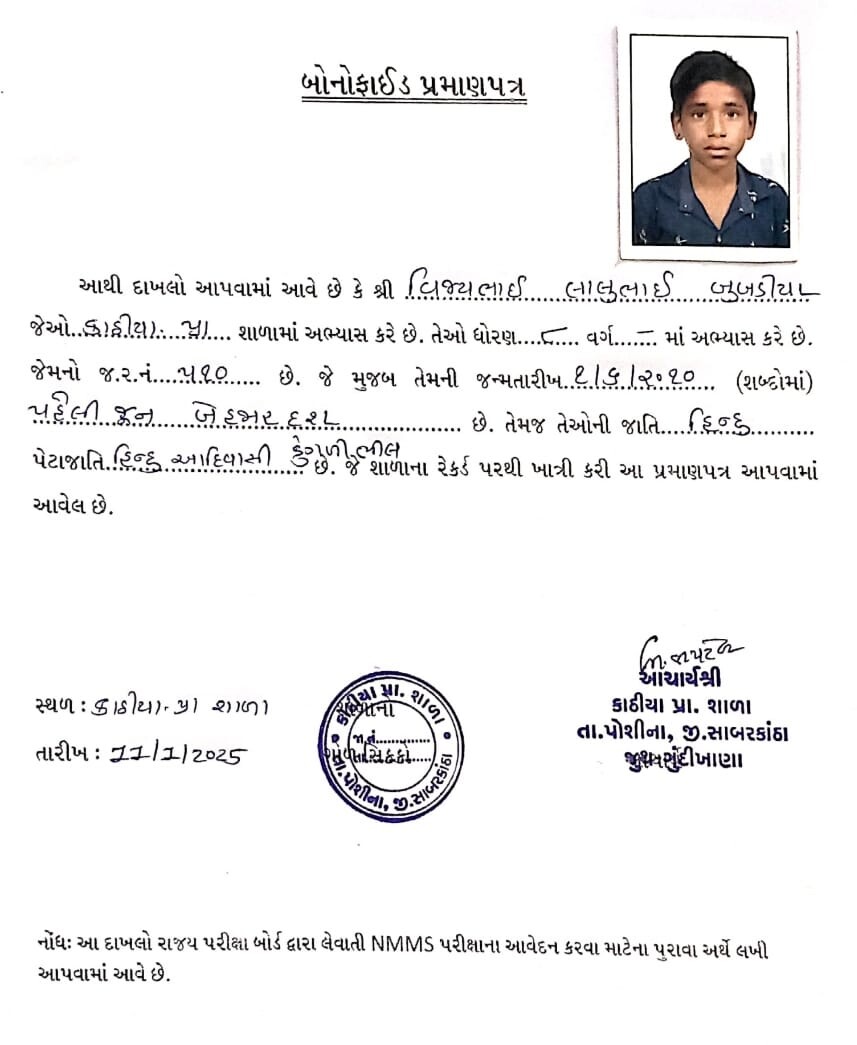 બોનોફાઈડ પ્રમાણપત્ર
આથી દાખલો આપવામાં આવે છે કે શ્રી વિજયભાઈ લાલુભાઈ બુબડીયા
જેઓ..કાઠીયા.પ્રા.... શાળામાં અભ્યાસ કરે છે. તેઓ ધોરણ....૮.... વર્ગ....–.. માં અભ્યાસ કરે છે.
જેમનો જ.ર.નં....૫૧૦...... છે. જે મુજબ તેમની જન્મતારીખ..૧/૬/૨૦૧૦.... (શબ્દોમાં)
પહેલી જુન બેહજાર દશ........ છે. તેમજ તેઓની જાતિ....હિન્દુ..........
પેટાજાતિ.હિન્દુ આદિવાસી ડુંગળી ભીલ છે. જે શાળાના રેકર્ડ પરથી ખાત્રી કરી આ પ્રમાણપત્ર આપવામાં
આવેલ છે.
આચાર્યશ્રી
સ્થળ : કાઠીયા-પ્રા શાળા
કાઠીયા પ્રા. શાળા
તા.પોશીના, જી.સાબરકાંઠા
તારીખ : 11/1/2025
કાઠીયા પ્રા. શાળા
જા.નં..............
તા.પોશીના, જી.સાબરકાંઠા
નોંધઃ આ દાખલો રાજય પરીક્ષા બોર્ડ દ્વારા લેવાતી NMMS પરીક્ષાના આવેદન કરવા માટેના પુરાવા અર્થે લખી
આપવામાં આવે છે.